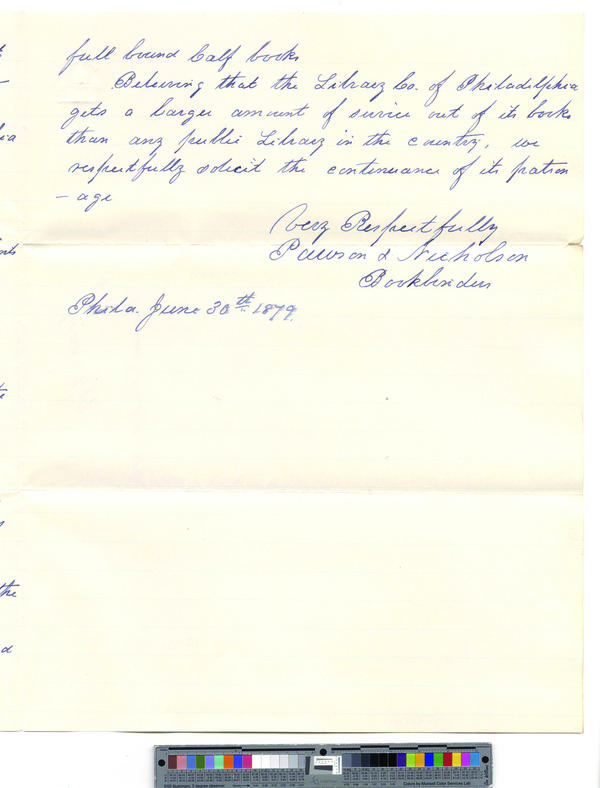 full bound Calf books
Believing that the Library Co. of Philadelphia
gets a larger amount of service out of its books
than any public Library in the country, we
respectfully solicit the continuance of its patron
- age
Very Respectfully
Pawson & Nicholson
Bookbinders
Phila. June 30th 1879.
the
d